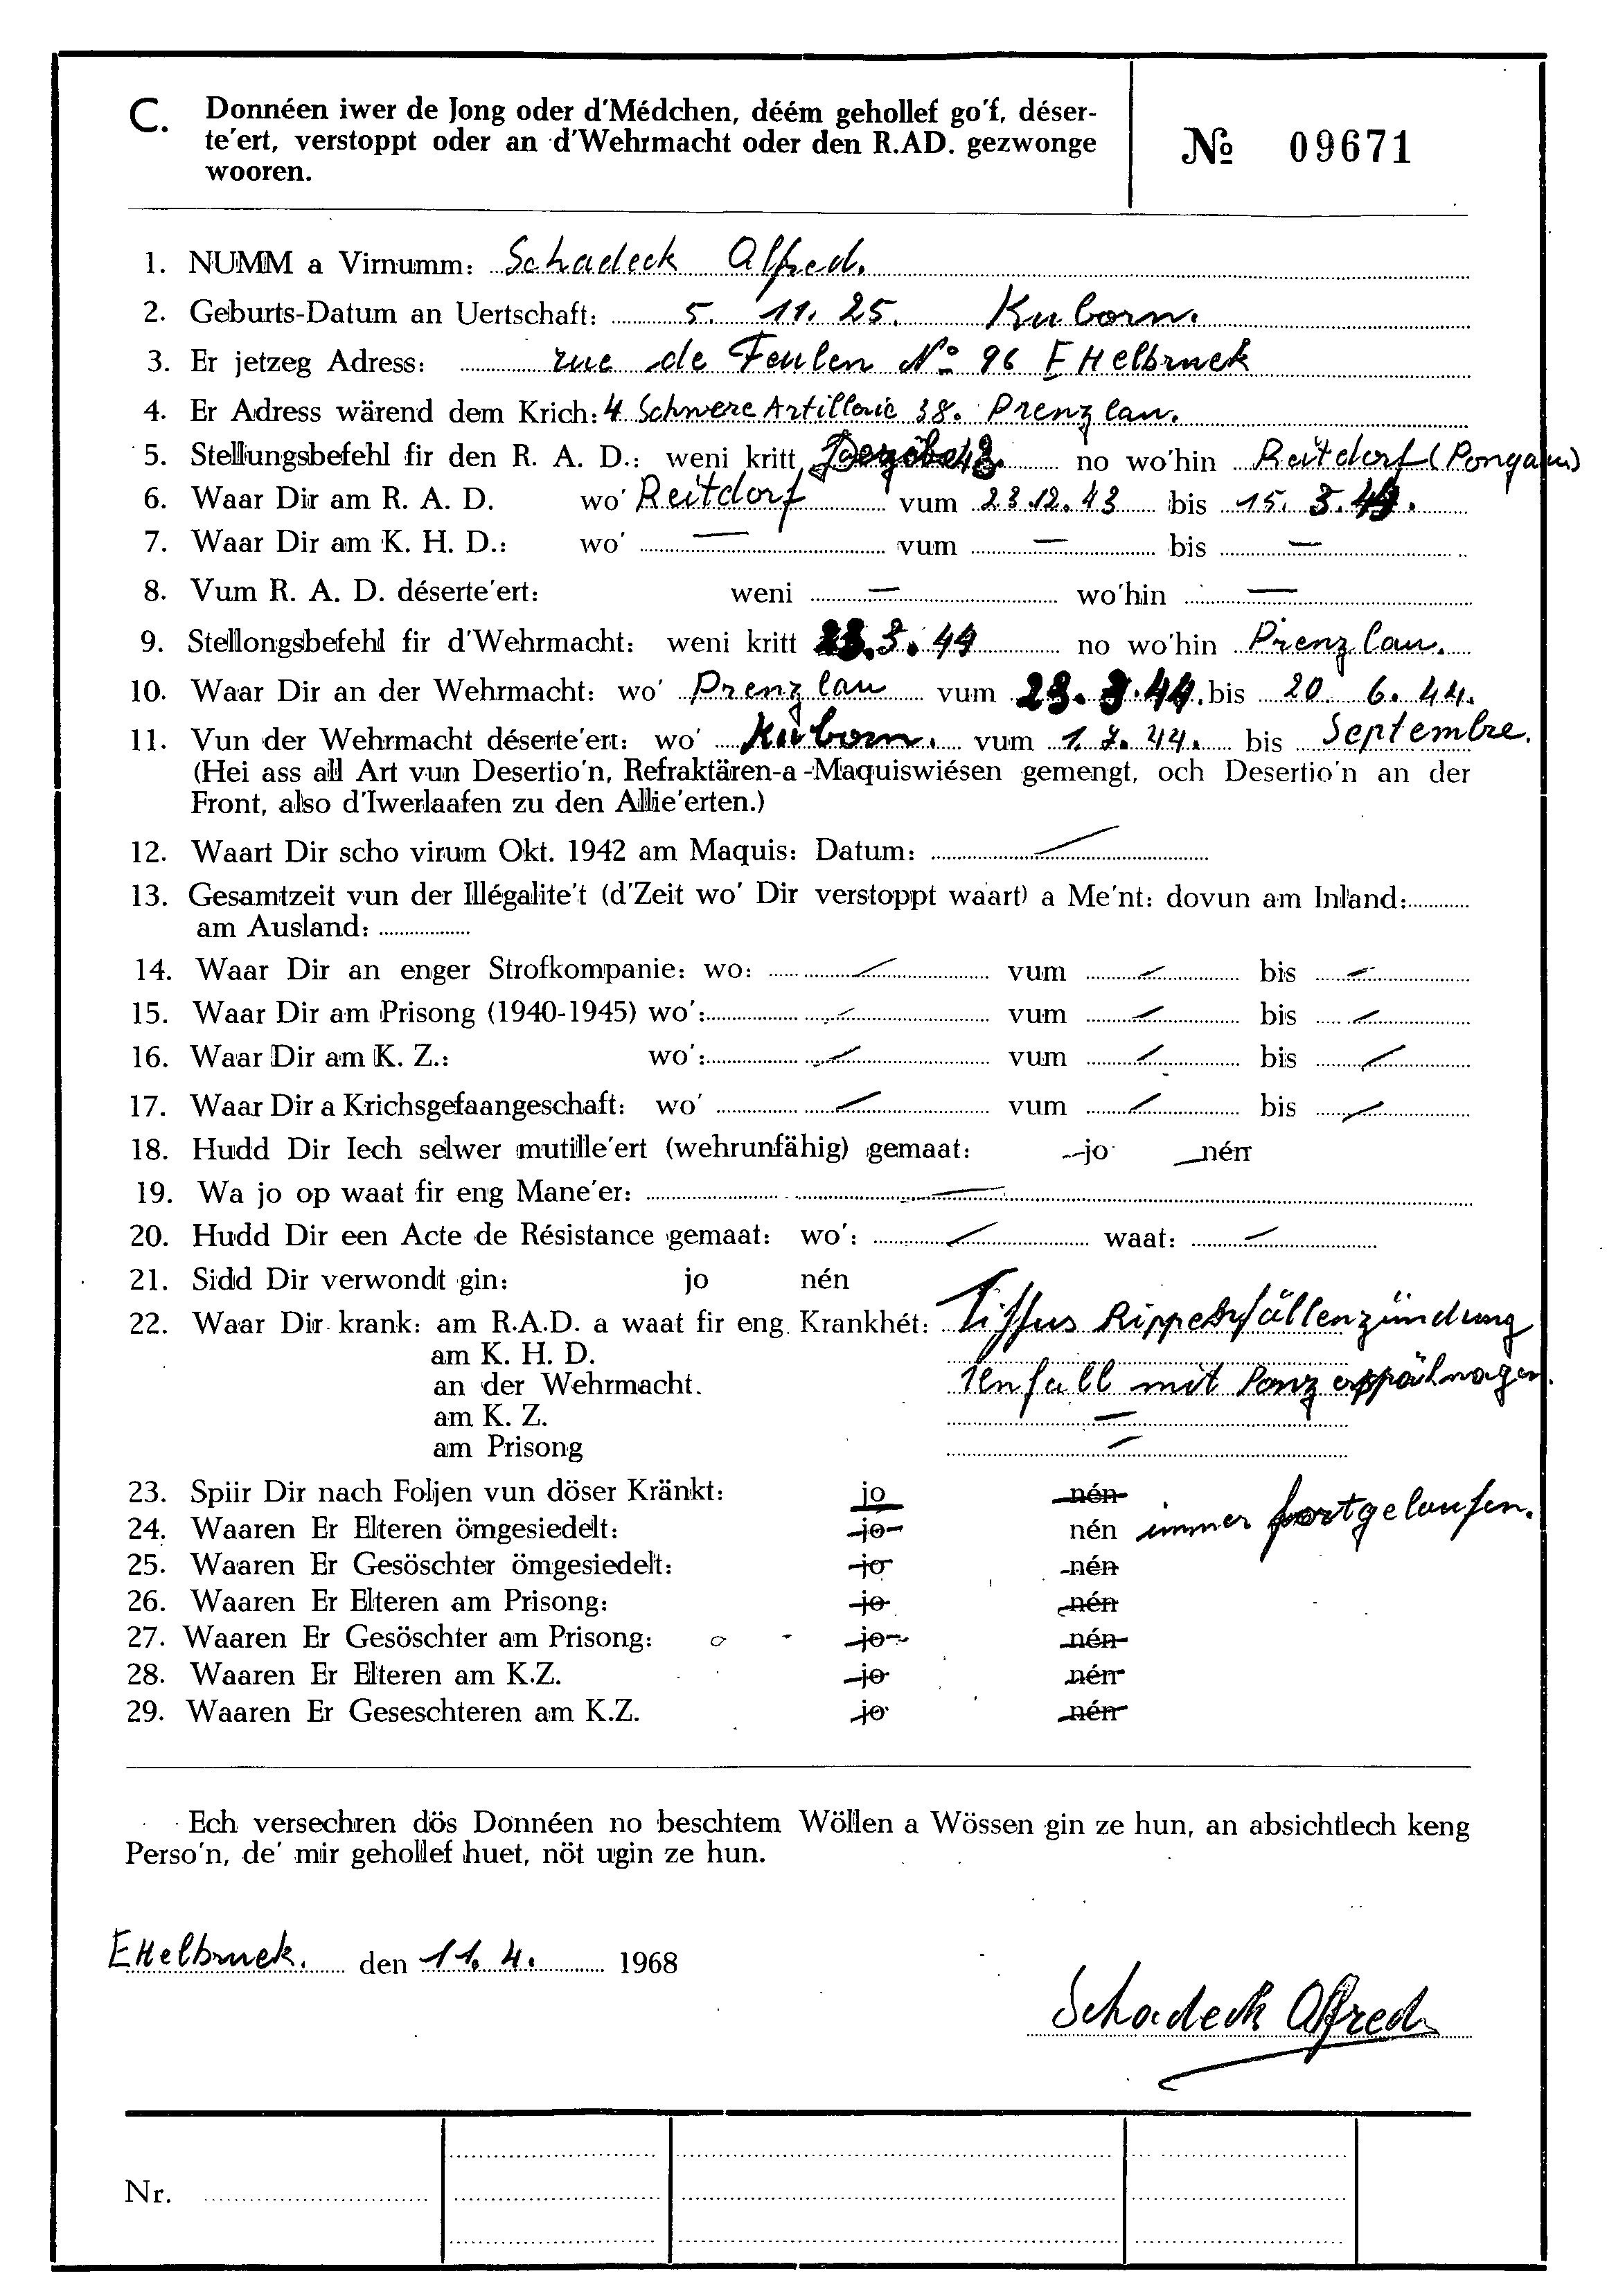 C. Donnéen iwer de Jong oder d'Médchen, déém gehollef go'f, déser-
te'ert, verstoppt oder an d'Wehrmacht oder den R.AD. gezwonge
wooren.
№ 09671
1. NUMM a Virnumm: Schadeck Alfred.
2. Geburts-Datum an Uertschaft: 5. 11. 25. Kuborn.
3. Er jetzeg Adress: rue de Feulen No 96 Ettelbruck
4. Er Adress wärend dem Krich: 4 Schwere Artillerie 38. Prenzlau.
5. Stellungsbefehl fir den R. A. D.: weni kritt 43. no wo'hin Reitdorf (Pongau)
6. Waar Dir am R. A. D. wo' Reitdorf vum 23.12.43 bis 15. 3.44.
7. Waar Dir am K. H. D.: wo' — vum — bis —
8. Vum R. A. D. déserte'ert: weni — wo'hin —
9. Stellongsbefehl fir d'Wehrmacht: weni kritt 3.44 no wo'hin Prenzlau.
10. Waar Dir an der Wehrmacht: wo' Prenzlau vum 23. 3.44. bis 20. 6. 44.
11. Vun der Wehrmacht déserte'ert: wo' Kuborn. vum 1.7.44. bis Septembre.
(Hei ass all Art vun Desertio'n, Refraktären-a-Maquiswiésen gemengt, och Desertio'n an der
Front, also d'Iwerlaafen zu den Allie'erten.)
12. Waart Dir scho virum Okt. 1942 am Maquis: Datum: —
13. Gesamtzeit vun der Illégalite't (d'Zeit wo' Dir verstoppt waart) a Me'nt: dovun am Inland:
am Ausland:
14. Waar Dir an enger Strofkompanie: wo: — vum — bis —
15. Waar Dir am Prisong (1940-1945) wo': — vum — bis —
16. Waar Dir am K. Z.: wo': — vum — bis —
17. Waar Dir a Krichsgefaangeschaft: wo' — vum — bis —
18. Hudd Dir Iech selwer mutille'ert (wehrunfähig) gemaat: jo nén
19. Wa jo op waat fir eng Mane'er: —
20. Hudd Dir een Acte de Résistance gemaat: wo': — waat: —
21. Sidd Dir verwondt gin: jo nén
22. Waar Dir krank: am R.A.D. a waat fir eng Krankhét: Tiffus Rippenfällenzündung
am K. H. D.
an der Wehrmacht. Unfall mit Panzerspähwagen.
am K. Z. —
am Prisong —
23. Spiir Dir nach Foljen vun döser Kränkt: jo nén
24. Waaren Er Elteren ömgesiedelt: jo nén immer fortgelaufen.
25. Waaren Er Gesöschter ömgesiedelt: jo nén
26. Waaren Er Elteren am Prisong: jo nén
27. Waaren Er Gesöschter am Prisong: jo nén
28. Waaren Er Elteren am K.Z. jo nén
29. Waaren Er Geseschteren am K.Z. jo nén
Ech versechren dös Donnéen no beschtem Wöllen a Wössen gin ze hun, an absichtlech keng
Perso'n, de' mir gehollef huet, nöt ugin ze hun.
Ettelbruck. den 11. 4. 1968
Schadeck Alfred
Nr.